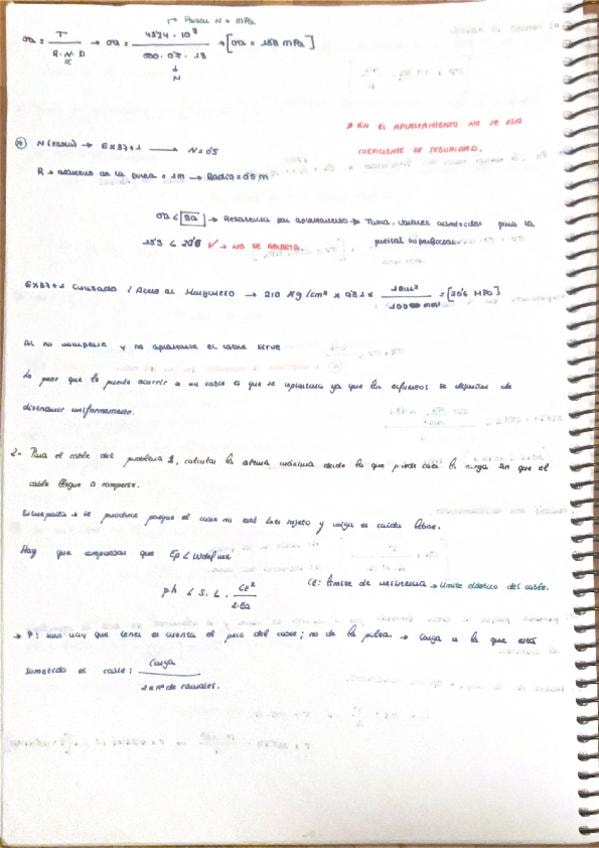 → Pasar N = MPa
σa = T / R · N · D → σa = 4574 · 10³ / 500 · 0'5 · 18 → [σa = MPa]
↓
N
* EN EL APLASTAMIENTO NO SE USA
COEFICIENTE DE SEGURIDAD.
N (tabla) → 6x37+1 → N = 0'5
R → diámetro de la = 1m → Radio = 0'5 m
σa < → Resistencia por aplastamiento → Tabla, valores admitidos para la
< 20'6 ✓ → NO SE APLASTA. presión superficial.
6x37+1 Cruzado / Acero al Manganeso → 210 Kg/cm² x 9'81 x = [20'6 MPa]
Al no romperse y no aplastarse el cable sirve
Lo peor que le puede ocurrir a un cable es que se aplastara ya que los esfuerzos se dejarían de
distribuir uniformemente.
2- Para el cable del problema 1, calcular la altura máxima desde la que puede caer la carga sin que el
cable llegue a romperse.
se produce porque el cable no está bien sujeto y caiga en caída libre.
Hay que que Ep <
ph < S. L. σe² / 2·Ea
σE: límite de → límite elástico del cable.
→ P: solo hay que tener en cuenta el peso del cubo; no de la → Carga a la que está
sometido el cable: Carga / 2 x nº de ramales.